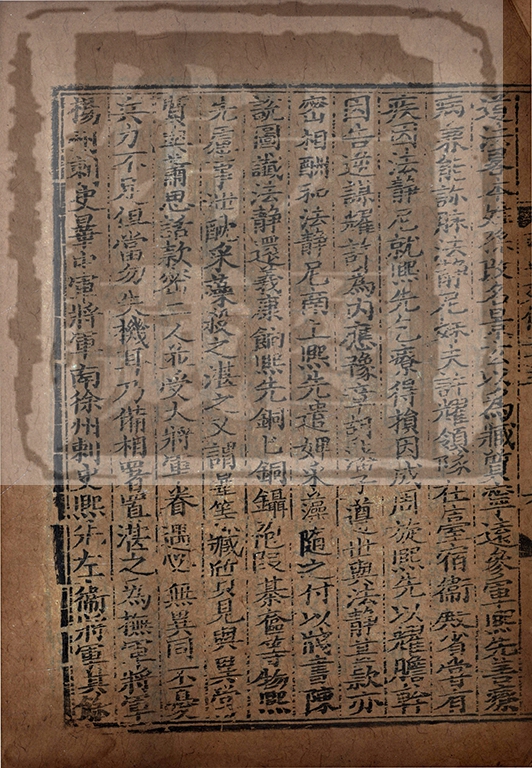 道法略今姓孫改名景玄以為臧質寧遠參軍熙先善療
病兼能診脉法靜尼妹夫許耀領隊在臺宿衞殿省嘗有
疾因法靜尼就熙先乞療得損因成周旋熙先以耀膽幹
因告逆謀耀許為內應豫章胡藩子遵世與法靜甚款亦
密相酬和法靜尼南上熙先遣婢采藻隨之付以牋書陳
說圖讖法靜還義康餉熙先銅匕銅鑷袍段棊奩等物熙
先慮事泄酖采藻殺之湛之又謂曄等臧質見與異常
質與蕭思話款密二人並受大將軍眷遇必無異同不憂
兵力不足但當勿失機耳乃備相署置湛之為撫軍將軍
揚州刺史曄中軍將軍南徐州刺史熙先左衞將軍其餘